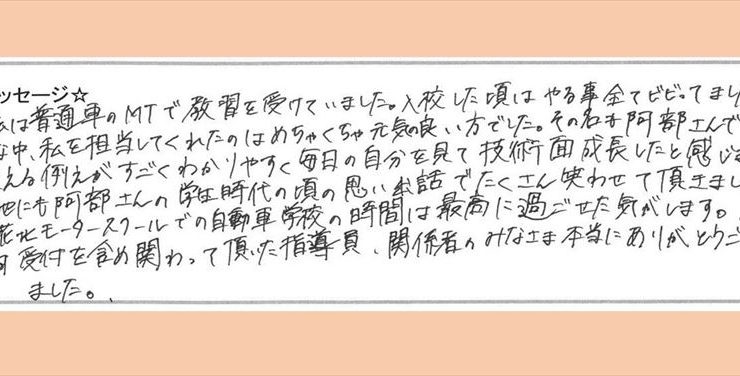 ッセージ☆
は普通車のMTで教習を受けていました。入校した頃はやる事全てビビってまし
中、私を担当してくれたのはめちゃくちゃ元気の良い方でした。その名も阿部さんで
える例えがすごくわかりやすく毎日の自分を見て技術面成長したと感じ
他にも阿部さんの学生時代の頃の思い出話でたくさん笑わせて頂きまし
花北モータースクールでの自動車学校の時間は最高に過ごせた気がします。
受付を含め関わって頂いた指導員、関係者のみなさま本当にありがとうご
ました。